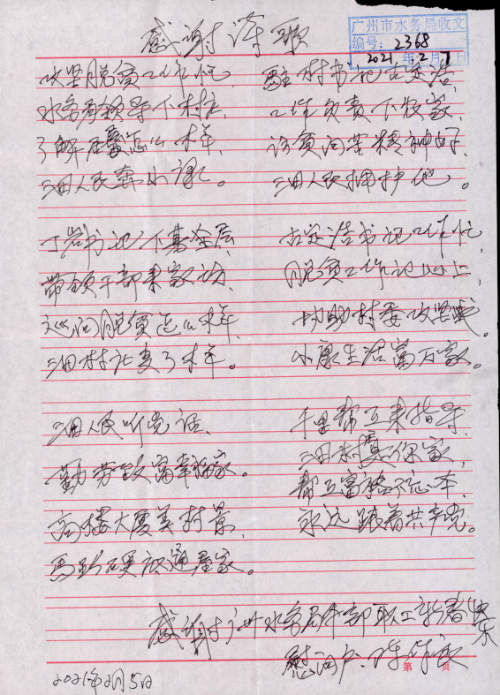 感谢诗歌
广州市水务局收文
编号：2368
2021年2月7日
攻坚脱贫工作忙
驻村书记古定浩
水务局领导下村
工作负责下农家
了解 怎么样
访贫问苦精神好
三田人民奔小康
三田人民拥护他。
丁岩书记下基层
古定浩书记工作忙
带领干部来家访
脱贫工作记心上
心问脱贫怎么样
协助村委攻坚战
三田村让变了样。
小康生活万万家。
三田人民听党话
千里帮扶来指导
勤劳致富幸福家。
三田村
帮扶富裕不忘本
高楼大厦美村景
永远跟着共产党。
马路硬底通屋家。
感谢广州水务局干部职工新春快乐
慰问户：陈
第 页
2021年2月5日